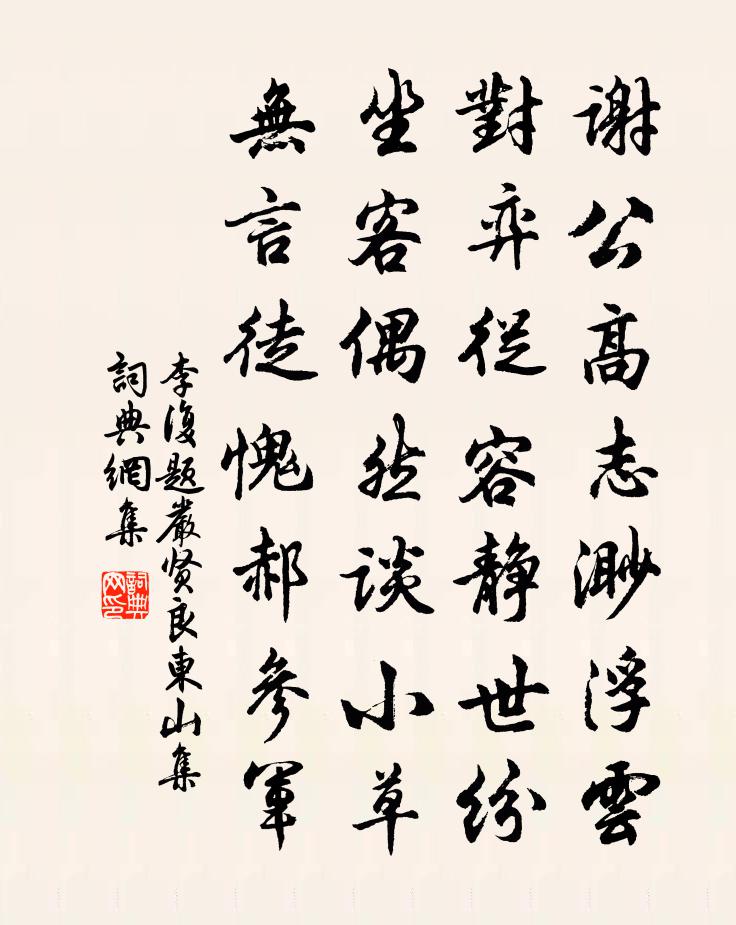 謝公高志渺浮雲
對弈從容静世紛
坐客偶然談小草
無言徒愧郝參軍
李復題嚴贤良東山集
詞典網集
詞典网印